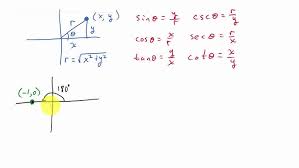 (x, y)
r
y
θ
x
r = √x² + y²
sinθ = y/r cscθ = r/y
cosθ = x/r secθ = r/x
tanθ = y/x cotθ = x/y
(-1,0)
180°